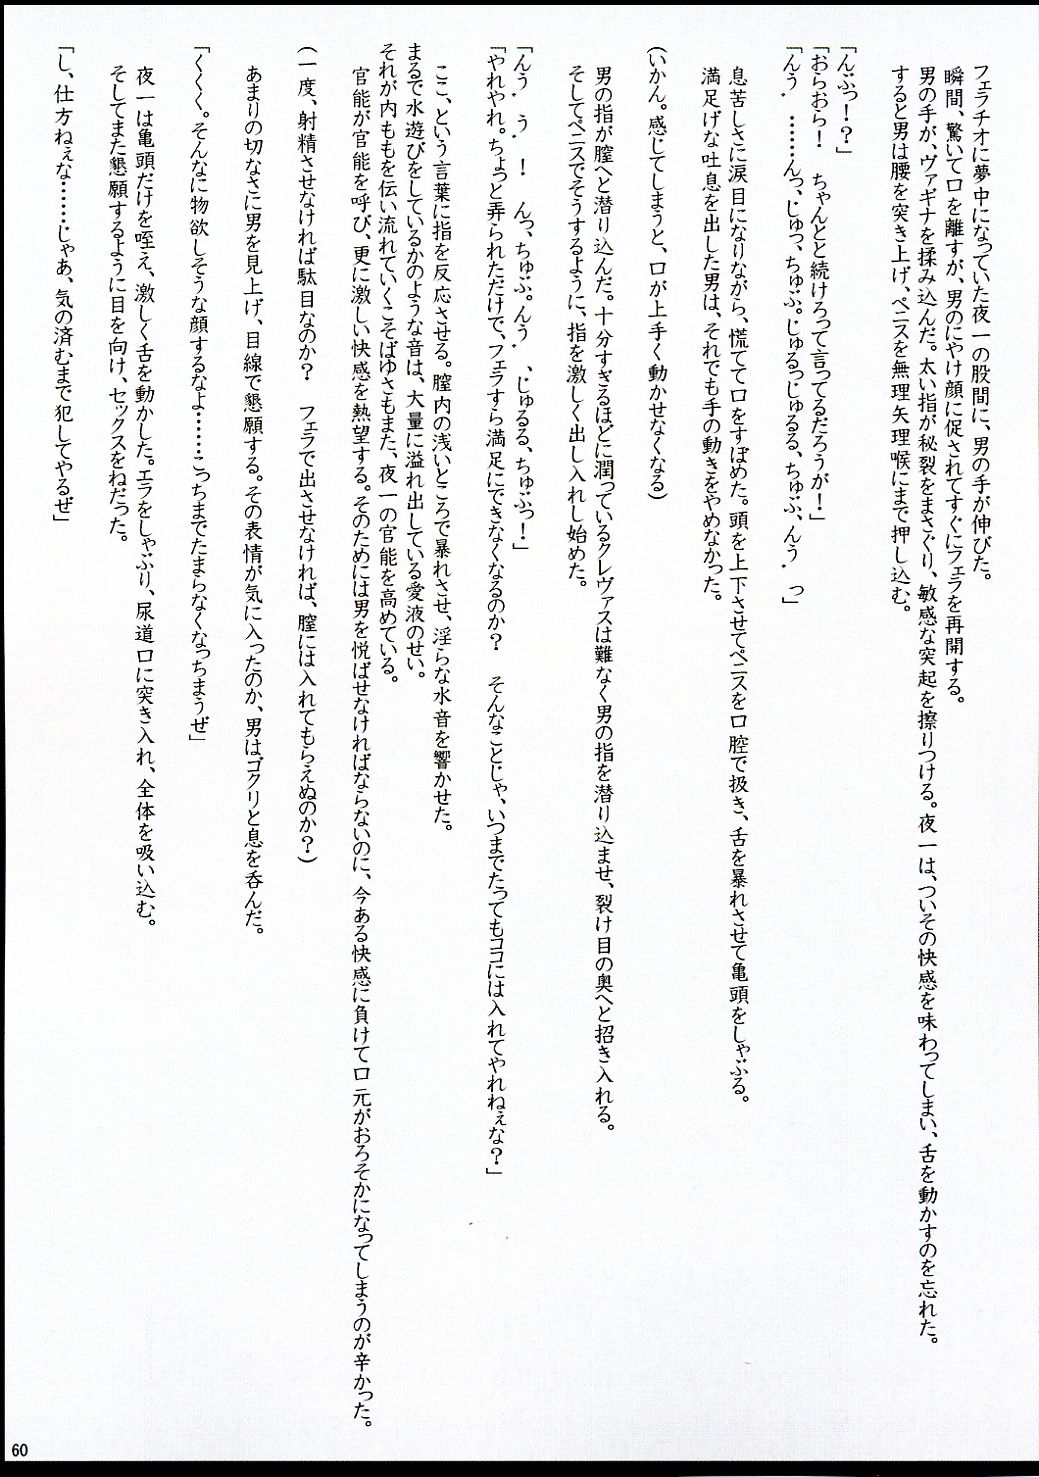 フェラチオに夢中になっていた夜一の股間に、男の手が伸びた。
瞬間、驚いて口を離すが、男のにやけ顔に促されてすぐにフェラを再開する。
男の手が、ヴァギナを揉み込んだ。太い指が秘裂をまさぐり、敏感な突起を擦りつける。夜一は、ついその快感を味わってしまい、舌を動かすのを忘れた。
すると男は腰を突き上げ、ペニスを無理矢理喉にまで押し込む。
「んぶっ！？」
「おらおら！　ちゃんとと続けろって言ってるだろうが！」
「んぅ．……んっ、じゅっ、ちゅぷ。じゅるっじゅるる、ちゅぷ、んぅ．っ」
息苦しさに涙目になりながら、慌てて口をすぼめた。頭を上下させてペニスを口腔で扱き、舌を暴れさせて亀頭をしゃぶる。
満足げな吐息を出した男は、それでも手の動きをやめなかった。
（いかん。感じてしまうと、口が上手く動かせなくなる）
男の指が膣へと潜り込んだ。十分すぎるほどに潤っているクレヴァスは難なく男の指を潜り込ませ、裂け目の奥へと招き入れる。
そしてペニスでそうするように、指を激しく出し入れし始めた。
「んぅ．ぅ．！　んっ、ちゅぷ。んぅ．、じゅるる、ちゅぷっ！」
「やれやれ。ちょっと弄られただけで、フェラすら満足にできなくなるのか？　そんなことじゃ、いつまでたってもココには入れてやれねぇな？」
ここ、という言葉に指を反応させる。膣内の浅いところで暴れさせ、淫らな水音を響かせた。
まるで水遊びをしているかのような音は、大量に溢れ出している愛液のせい。
それが内ももを伝い流れていくこそばゆさもまた、夜一の官能を高めている。
官能が官能を呼び、更に激しい快感を熱望する。そのためには男を悦ばせなければならないのに、今ある快感に負けて口元がおろそかになってしまうのが辛かった。
（一度、射精させなければ駄目なのか？　フェラで出させなければ、膣には入れてもらえぬのか？）
あまりの切なさに男を見上げ、目線で懇願する。その表情が気に入ったのか、男はゴクリと息を呑んだ。
「くくく。そんなに物欲しそうな顔するなよ……こっちまでたまらなくなっちまうぜ」
夜一は亀頭だけを咥え、激しく舌を動かした。エラをしゃぶり、尿道口に突き入れ、全体を吸い込む。
そしてまた懇願するように目を向け、セックスをねだった。
「し、仕方ねぇな……じゃあ、気の済むまで犯してやるぜ」
60